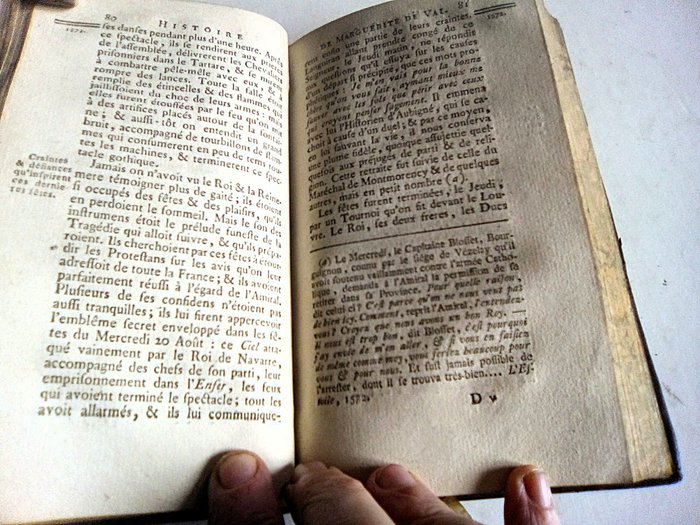 80 HISTOIRE
1572.
ses danses pendant plus d'une heure. Après
ce spectacle, ils se rendirent aux prieres
de l'assemblée, délivrerent les Chevaliers
prisonniers dans le Tartare, & se mirent
à combattre pêle-mêle avec eux,
rompre des lances. Toute la salle étoit
remplie des étincelles & des flammes qui
jaillissoient du choc de leurs armes: mais
elles furent étouffées par le feu qu'on mit
à des artifices placés autour de la fontai-
ne; & aussi-tôt on entendit un grand
bruit, accompagné de tourbillons de flam-
mes qui consumerent en peu de tems tou-
tes les machines, & terminerent ce spec-
tacle gothique.
Craintes
& défiances
qu'inspirent
ces dernie-
res fêtes.
Jamais on n'avoit vu le Roi & la Reine-
mere témoigner plus de gaité; ils étoient
si occupés des fêtes & des plaisirs, qu'ils
en perdoient le sommeil. Mais le son des
instrumens étoit le prélude funeste de la
Tragédie qui alloit suivre, & qu'ils prépa-
roient. Ils cherchoient par ces fêtes à étour-
dir les Protestans sur les avis qu'on leur
adressoit de toute la France; & ils avoient
parfaitement réussi à l'égard de l'Amiral.
Plusieurs de ses confidens n'étoient pas
aussi tranquilles; ils lui firent appercevoir
l'emblême secret enveloppé dans les fê-
tes du Mercredi 20 Août: ce Ciel atta-
qué vainement par le Roi de Navarre,
accompagné des chefs de son parti, leur
emprisonnement dans l'Enfer, les feux
qui avoient terminé le spectacle; tout les
avoit allarmés, & ils lui communique-
DE MARGUERITE DE VAL. 81
1572.
rent enfin une partie de leurs craintes.
allant prendre congé de ce
Seigneur le Jeudi matin, ne répondit
aux questions qu'il essuya sur les causes
d'un départ si précipité, que ces mots pro-
phétiques: Je m'en vais pour la bonne
chère qu'on vous fait, ayant mieux me
sauver avec les fols que périr avec ceux
qui croyent penser sagement. Il emmena
avec lui l'Historien d'Aubigné, qui se ca-
choit à cause d'un duel; & par ce moyen,
en lui sauvant la vie, il nous conserva
une plume fidèle, quoique assujettie quel-
quefois aux préjugés de parti & de reli-
gion. Cette retraite fut suivie de celle du
Maréchal de Montmorency & de quelques
autres, mais en petit nombre (a).
Les fêtes furent terminées, le Jeudi,
par un Tournoi qu'on fit devant le Lou-
vre. Le Roi, ses deux freres, les Ducs
(a) Le Mercredi, le Capitaine Blosset, Bour-
guignon, connu par le siége de Vézelay qu'il
avoit soutenu vaillamment contre l'armée Catho-
lique, demanda à l'Amiral la permission de se
retirer dans sa Province. Pour quelle raison,
dit celui-ci? C'est parce qu'on ne nous veut pas
de bien icy. Comment, reprit l'Amiral, l'entendez-
vous? Croyez que nous avons un bon Roy. —
Il nous est trop bon, dit Blosset, c'est pourquoi
j'ay envie de m'en aller, & si vous en faisiez
de même comme moy, vous feriez beaucoup pour
vous & pour nous. Et fut jamais possible de
l'arrester, dont il se trouva très-bien.... L'Es-
toile, 1572.
D v